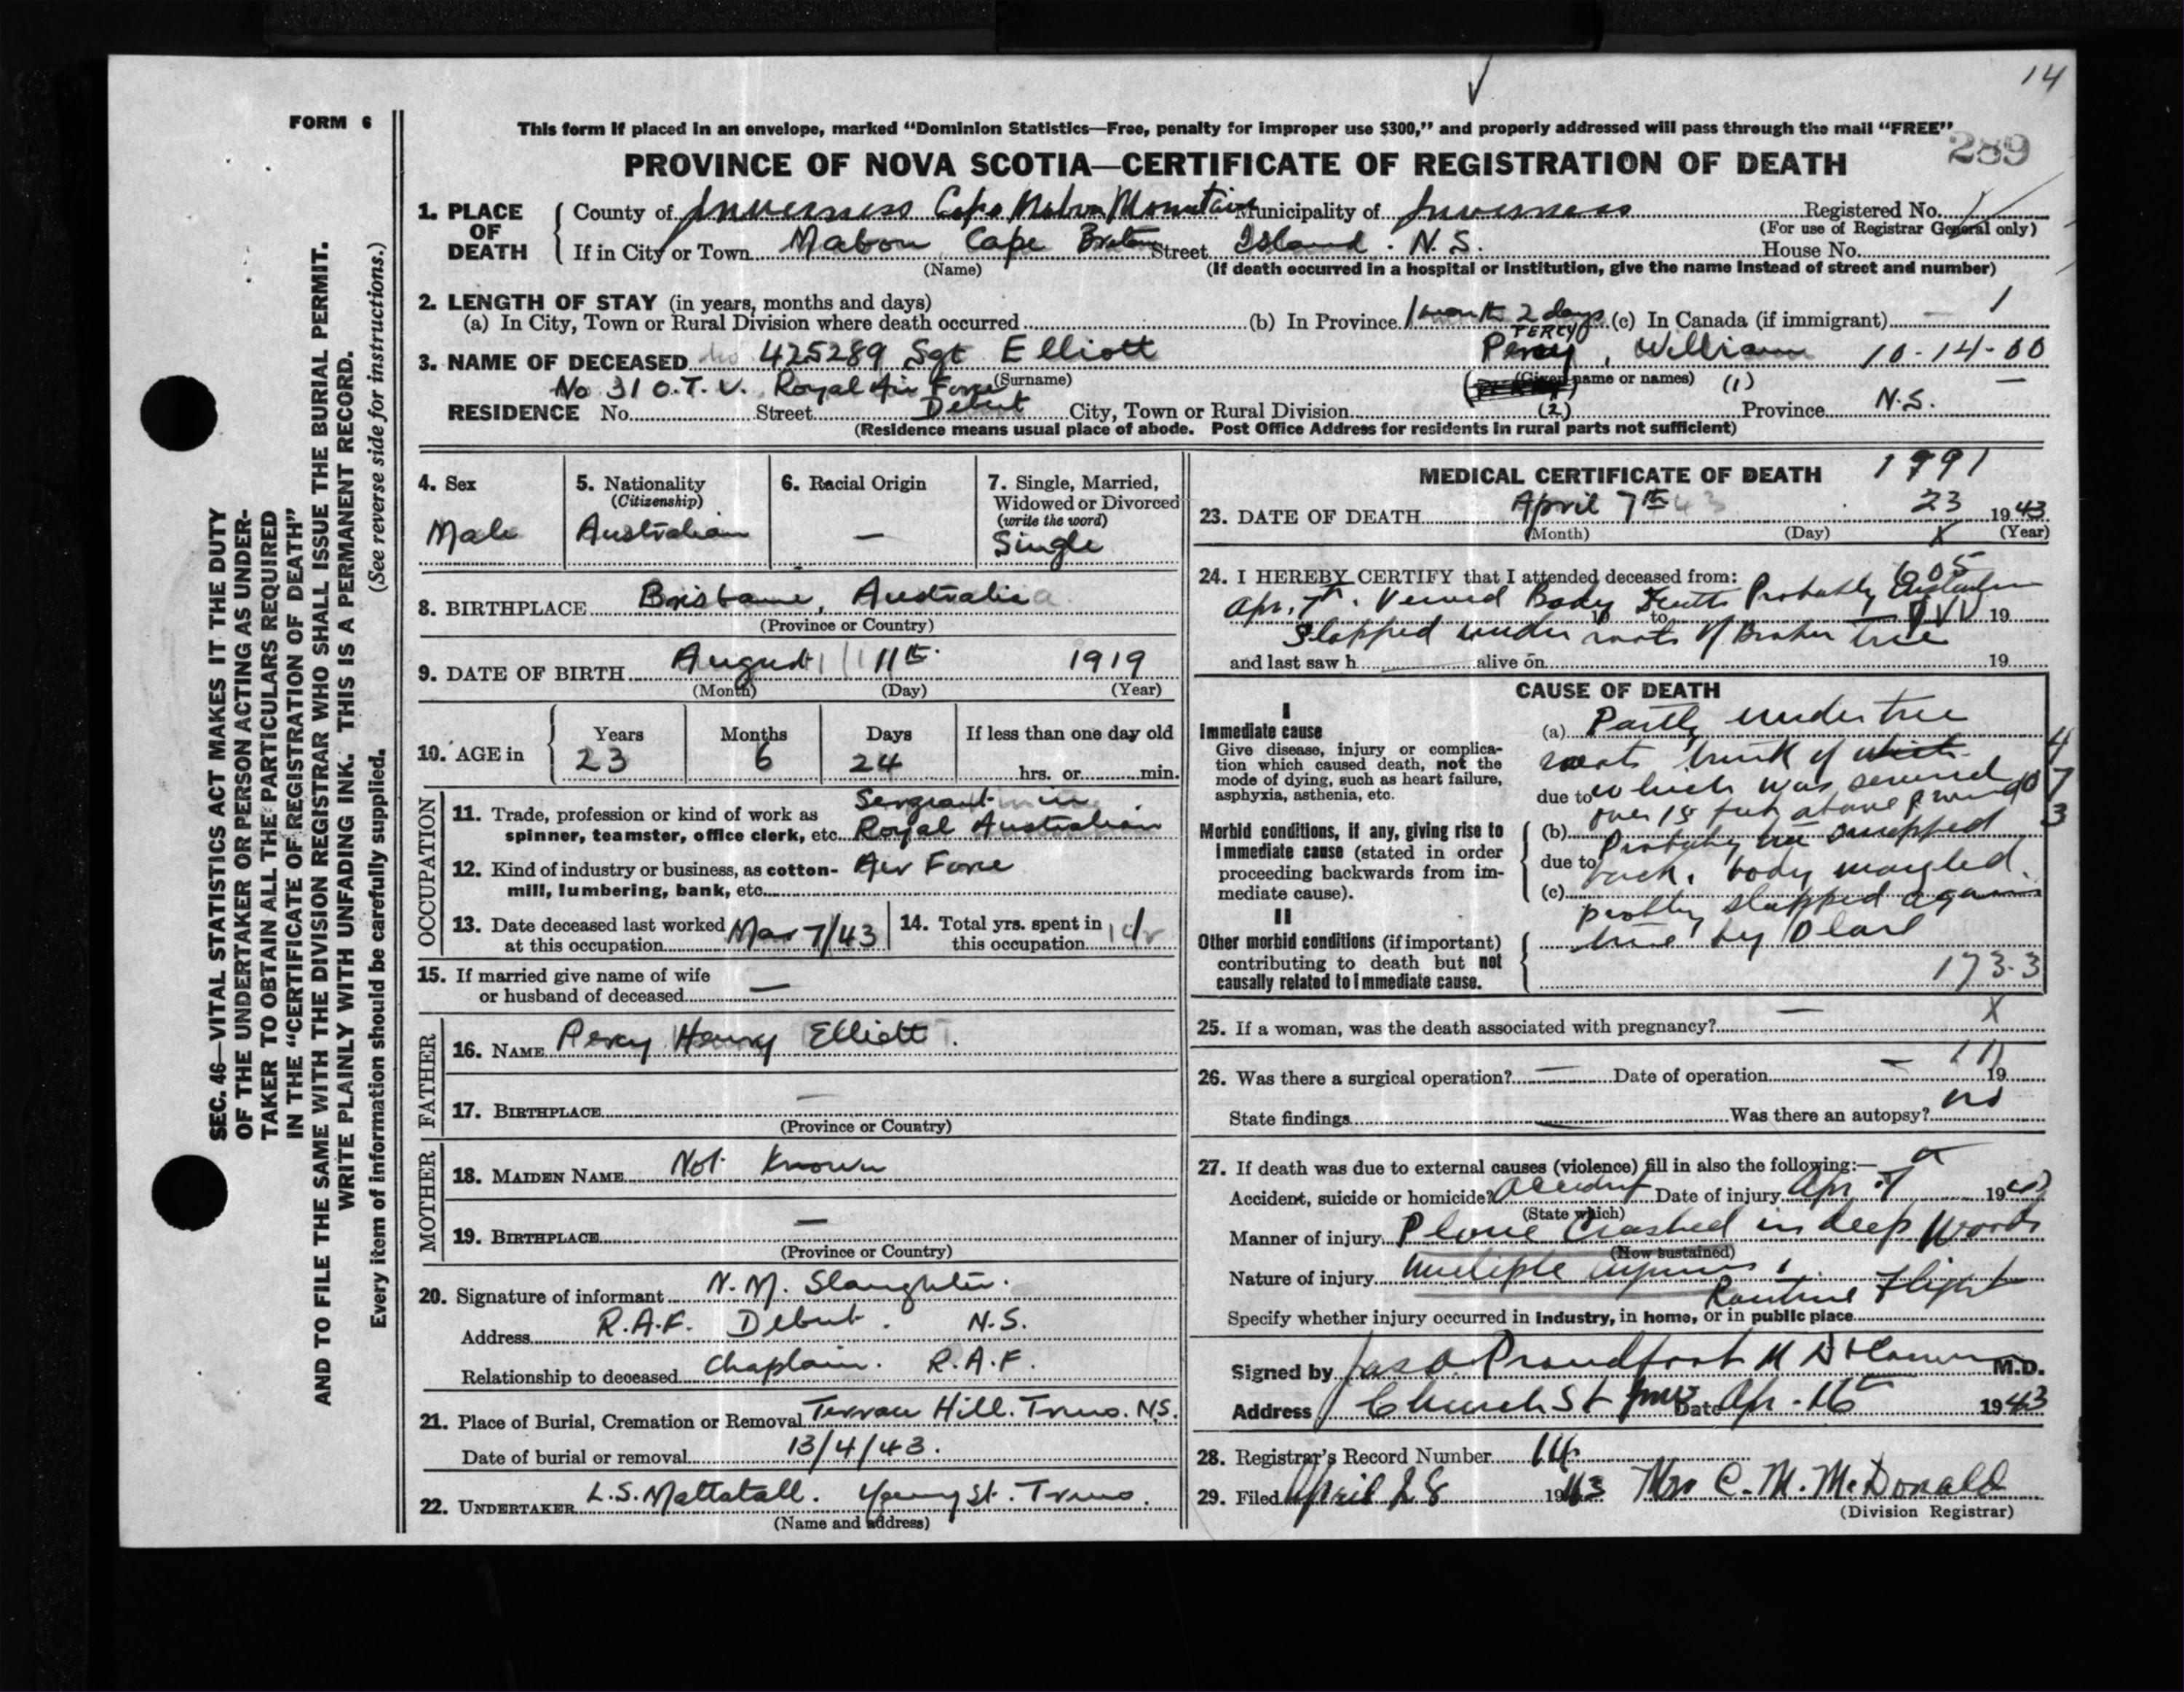 14
FORM 6
This form if placed in an envelope, marked “Dominion Statistics—Free, penalty for improper use $300,” and properly addressed will pass through the mail “FREE”
289
PROVINCE OF NOVA SCOTIA—CERTIFICATE OF REGISTRATION OF DEATH
SEC. 46—VITAL STATISTICS ACT MAKES IT THE DUTY
OF THE UNDERTAKER OR PERSON ACTING AS UNDER-
TAKER TO OBTAIN ALL THE PARTICULARS REQUIRED
IN THE “CERTIFICATE OF REGISTRATION OF DEATH”
AND TO FILE THE SAME WITH THE DIVISION REGISTRAR WHO SHALL ISSUE THE BURIAL PERMIT.
WRITE PLAINLY WITH UNFADING INK. THIS IS A PERMANENT RECORD.
Every item of information should be carefully supplied. (See reverse side for instructions.)
1. PLACE OF DEATH County of Inverness Cape Mabou Mountain Municipality of Inverness Registered No.
(For use of Registrar General only)
If in City or Town Mabou Cape Breton Street Island. N.S. House No.
(Name) (If death occurred in a hospital or institution, give the name instead of street and number)
2. LENGTH OF STAY (in years, months and days)
(a) In City, Town or Rural Division where death occurred (b) In Province 1 month 2 days (c) In Canada (if immigrant) — 1
PERCY
3. NAME OF DECEASED No 425289 Sgt Elliott Percy, William 10-14-00
(Surname) (Given name or names) (1)
No 31 O.T.U. Royal Air Force
RESIDENCE No. Street Debert City, Town or Rural Division (2) Province N.S.
(Residence means usual place of abode. Post Office Address for residents in rural parts not sufficient)
4. Sex
Male
5. Nationality
(Citizenship)
Australian
6. Racial Origin
—
7. Single, Married,
Widowed or Divorced
(write the word)
Single
8. BIRTHPLACE Brisbane, Australia
(Province or Country)
9. DATE OF BIRTH August 11th 1919
(Month) (Day) (Year)
10. AGE in Years Months Days If less than one day old
23 6 24 hrs. or min.
OCCUPATION
11. Trade, profession or kind of work as Sergeant in
spinner, teamster, office clerk, etc. Royal Australian
12. Kind of industry or business, as cotton- Air Force
mill, lumbering, bank, etc.
13. Date deceased last worked at this occupation Mar 7/43
14. Total yrs. spent in this occupation
15. If married give name of wife
or husband of deceased —
FATHER
16. NAME Percy Henry Elliott.
17. BIRTHPLACE —
(Province or Country)
MOTHER
18. MAIDEN NAME Not Known
19. BIRTHPLACE —
(Province or Country)
20. Signature of informant N.M. Slaughter.
Address R.A.F. Debert. N.S.
Relationship to deceased Chaplain. R.A.F.
21. Place of Burial, Cremation or Removal Terrace Hill. Truro. N.S.
Date of burial or removal 13/4/43.
22. UNDERTAKER L.S. Mattatall. Young St. Truro.
(Name and address)
MEDICAL CERTIFICATE OF DEATH 1991
23. DATE OF DEATH April 7th 23 1943
(Month) (Day) (Year)
24. I HEREBY CERTIFY that I attended deceased from:
Apr. 7th. Viewed Body Death Probably
19 to 19
Slapped under roots of Broken tree
and last saw h alive on 19
CAUSE OF DEATH
I
Immediate cause
Give disease, injury or complica-
tion which caused death, not the
mode of dying, such as heart failure,
asphyxia, asthenia, etc.
(a) Partly under tree
roots trunk of which
due to which was severed
over 15 feet above ground
Morbid conditions, if any, giving rise to
immediate cause (stated in order
proceeding backwards from im-
mediate cause).
(b) Probably tree snapped
due to back, body mangled.
(c) probly slapped again
II
Other morbid conditions (if important)
contributing to death but not
causally related to immediate cause.
tree by Plane
173.3
25. If a woman, was the death associated with pregnancy? — X
26. Was there a surgical operation? — Date of operation — 19
State findings Was there an autopsy? no
27. If death was due to external causes (violence) fill in also the following:—
Accident, suicide or homicide? Accident Date of injury Apr. 7 1943
(State which)
Manner of injury Plane Crashed in deep Woods
(How sustained)
Nature of injury Multiple injuries.
Routine Flight
Specify whether injury occurred in industry, in home, or in public place
Signed by Jas. A. Proudfoot M.D. M.D.
Address Church St Date Apr - 16 1943
28. Registrar’s Record Number 14
29. Filed April 28 1943 Mrs C. M. McDonald
(Division Registrar)